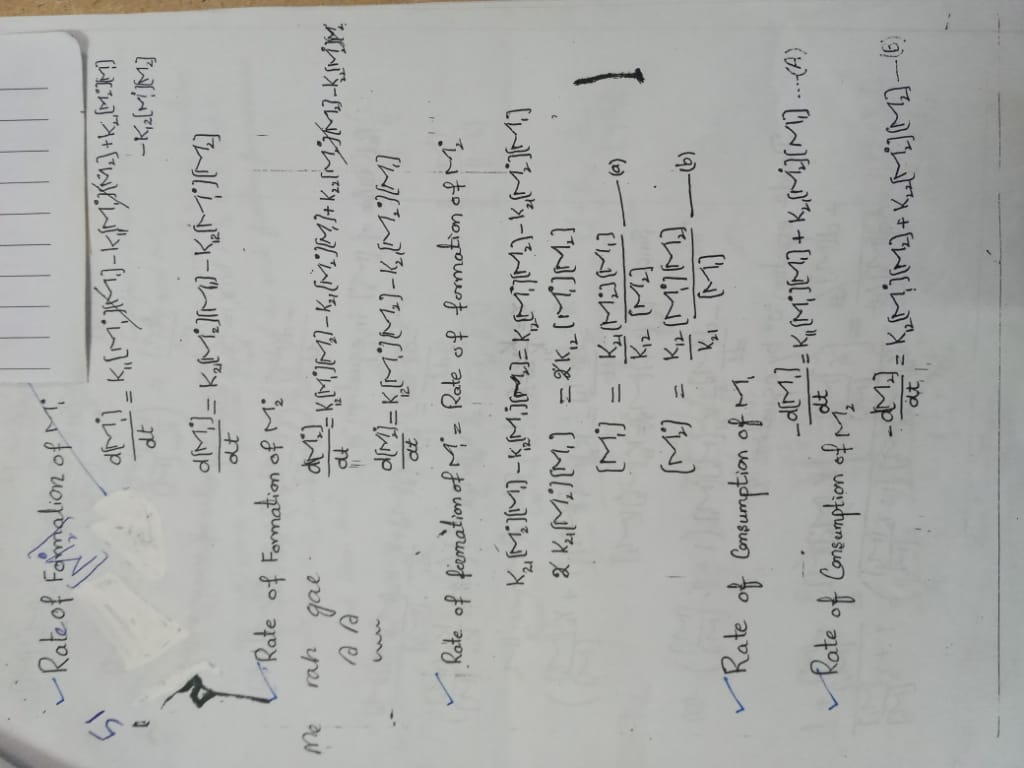 Rate of Formation of M₁•
d[M₁•]/dt = K₁₁[M₁•][M₁] - K₁₁[M₁•][M₁] + K₂₁[M₂•][M₁]
- K₁₂[M₁•][M₂]
d[M₁•]/dt = K₂₁[M₂•][M₁] - K₁₂[M₁•][M₂]
Rate of Formation of M₂•
Me rah gae
d[M₂•]/dt = K₁₂[M₁•][M₂] - K₂₁[M₂•][M₁] + K₂₂[M₂•][M₂] - K₂₂[M₂•][M₂]
d[M₂•]/dt = K₁₂[M₁•][M₂] - K₂₁[M₂•][M₁]
Rate of formation of M₁• = Rate of formation of M₂•
K₂₁[M₂•][M₁] - K₁₂[M₁•][M₂] = K₁₂[M₁•][M₂] - K₂₁[M₂•][M₁]
2 K₂₁[M₂•][M₁] = 2K₁₂ [M₁•][M₂]
[M₁•] = K₂₁[M₂•][M₁]/K₁₂ [M₂] —(a)
[M₂•] = K₁₂[M₁•][M₂]/K₂₁ [M₁] —(b)
Rate of Consumption of M₁
-d[M₁]/dt = K₁₁[M₁•][M₁] + K₂₁[M₂•][M₁] ...(A)
Rate of Consumption of M₂
-d[M₂]/dt = K₁₂[M₁•][M₂] + K₂₂[M₂•][M₂] —(B)